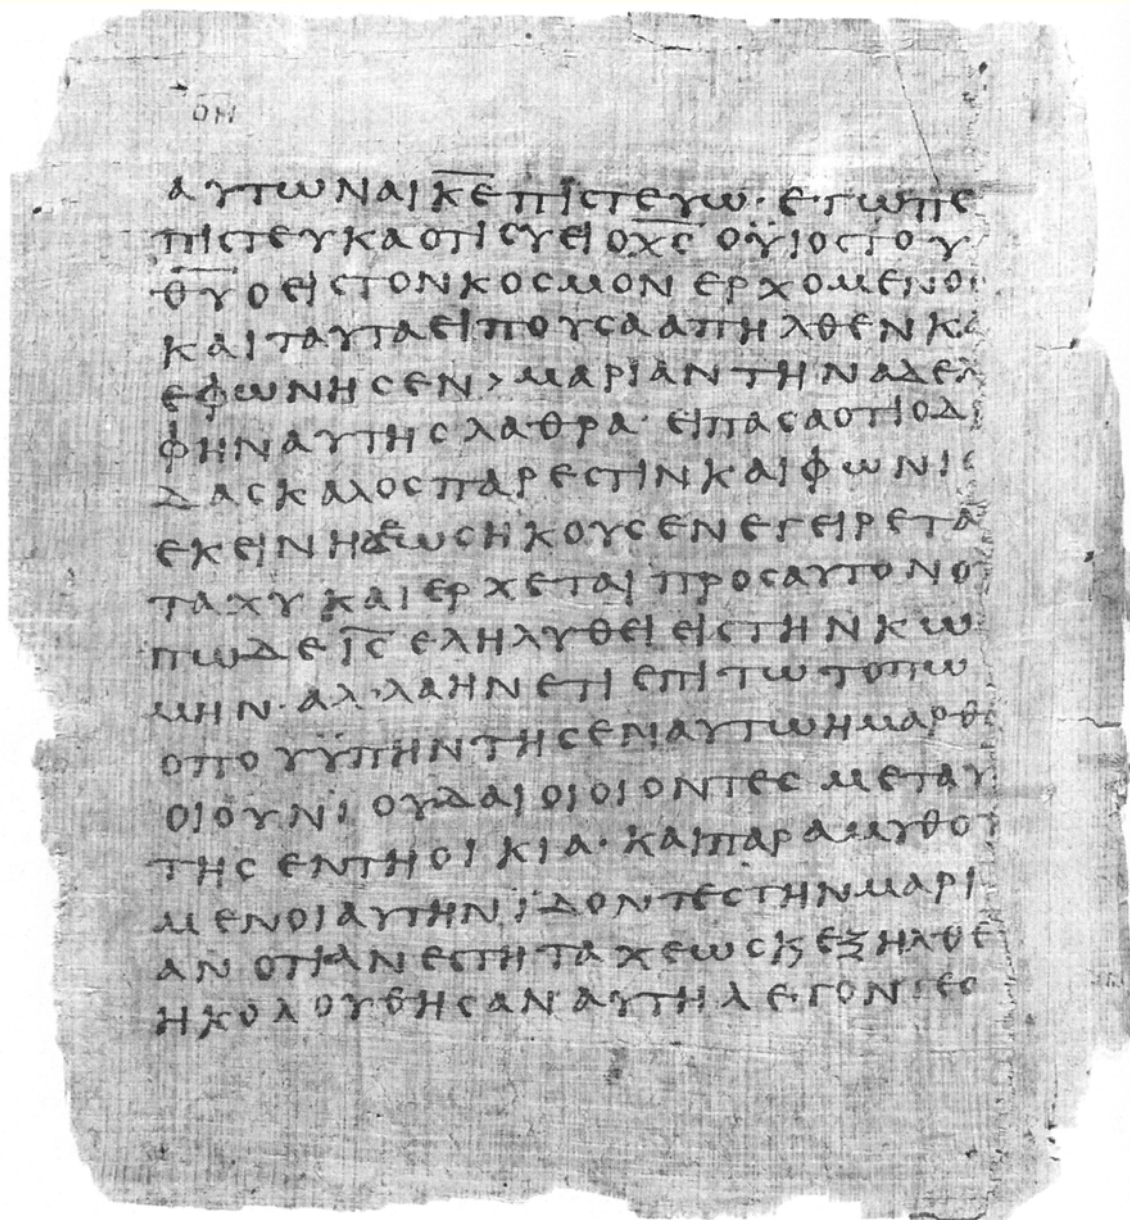 ΟΗ
ΑΥΤΩΝΑΙΚ̅Ε̅ΠΙϹΤΕΥΩ· ΕΓΩΠΕ
ΠΙϹΤΕΥΚΑΟΤΙϹΥΕΙΟΧ̅Ϲ̅ ΟΫΙΟϹΤΟΥ
Θ̅Υ̅ΟΕΙϹΤΟΝΚΟϹΜΟΝ ΕΡΧΟΜΕΝΟϹ
ΚΑΙΤΑΥΤΑΕΙΠΟΥϹΑΑΠΗΛΘΕΝΚΑ
ΕΦΩΝΗϹΕΝ> ΜΑΡΙΑΝΤΗΝΑΔΕΛ
ΦΗΝΑΥΤΗϹΛΑΘΡΑ· ΕΙΠΑϹΑΟΤΙΟΔΙ
ΔΑϹΚΑΛΟϹΠΑΡΕϹΤΙΝΚΑΙΦΩΝΙϹ
ΕΚΕΙΝΗΔΕΩϹΗΚΟΥϹΕΝΕΓΕΙΡΕΤΑ
ΤΑΧΥ ΚΑΙΕΡΧΕΤΑΙΠΡΟϹΑΥΤΟΝΟ
ΠΩΔΕΙ̅Ϲ̅ ΕΛΗΛΥΘΕΙΕΙϹΤΗΝΚΩ
ΜΗΝ· ΑΛ·ΛΑΗΝΕΤΙΕΠΙΤΩΤΟΠΩ
ΟΠΟΥΫΠΗΝΤΗϹΕΝΑΥΤΩΗΜΑΡΘΑ
ΟΙΟΥΝΙΟΥΔΑΙΟΙΟΙΟΝΤΕϹ ΜΕΤΑΥ
ΤΗϹ ΕΝΤΗΟΙΚΙΑ· ΚΑΙΠΑΡΑΜΥΘΟΥ
ΜΕΝΟΙΑΥΤΗΝΪΔΟΝΤΕϹΤΗΝΜΑΡΙ
ΑΝ ΟΤΙΑΝΕϹΤΗΤΑΧΕΩϹΚϗΕΞΗΛΘΕ
ΗΚΟΛΟΥΘΗϹΑΝΑΥΤΗΛΕ·ΓΟΝΤΕϹ